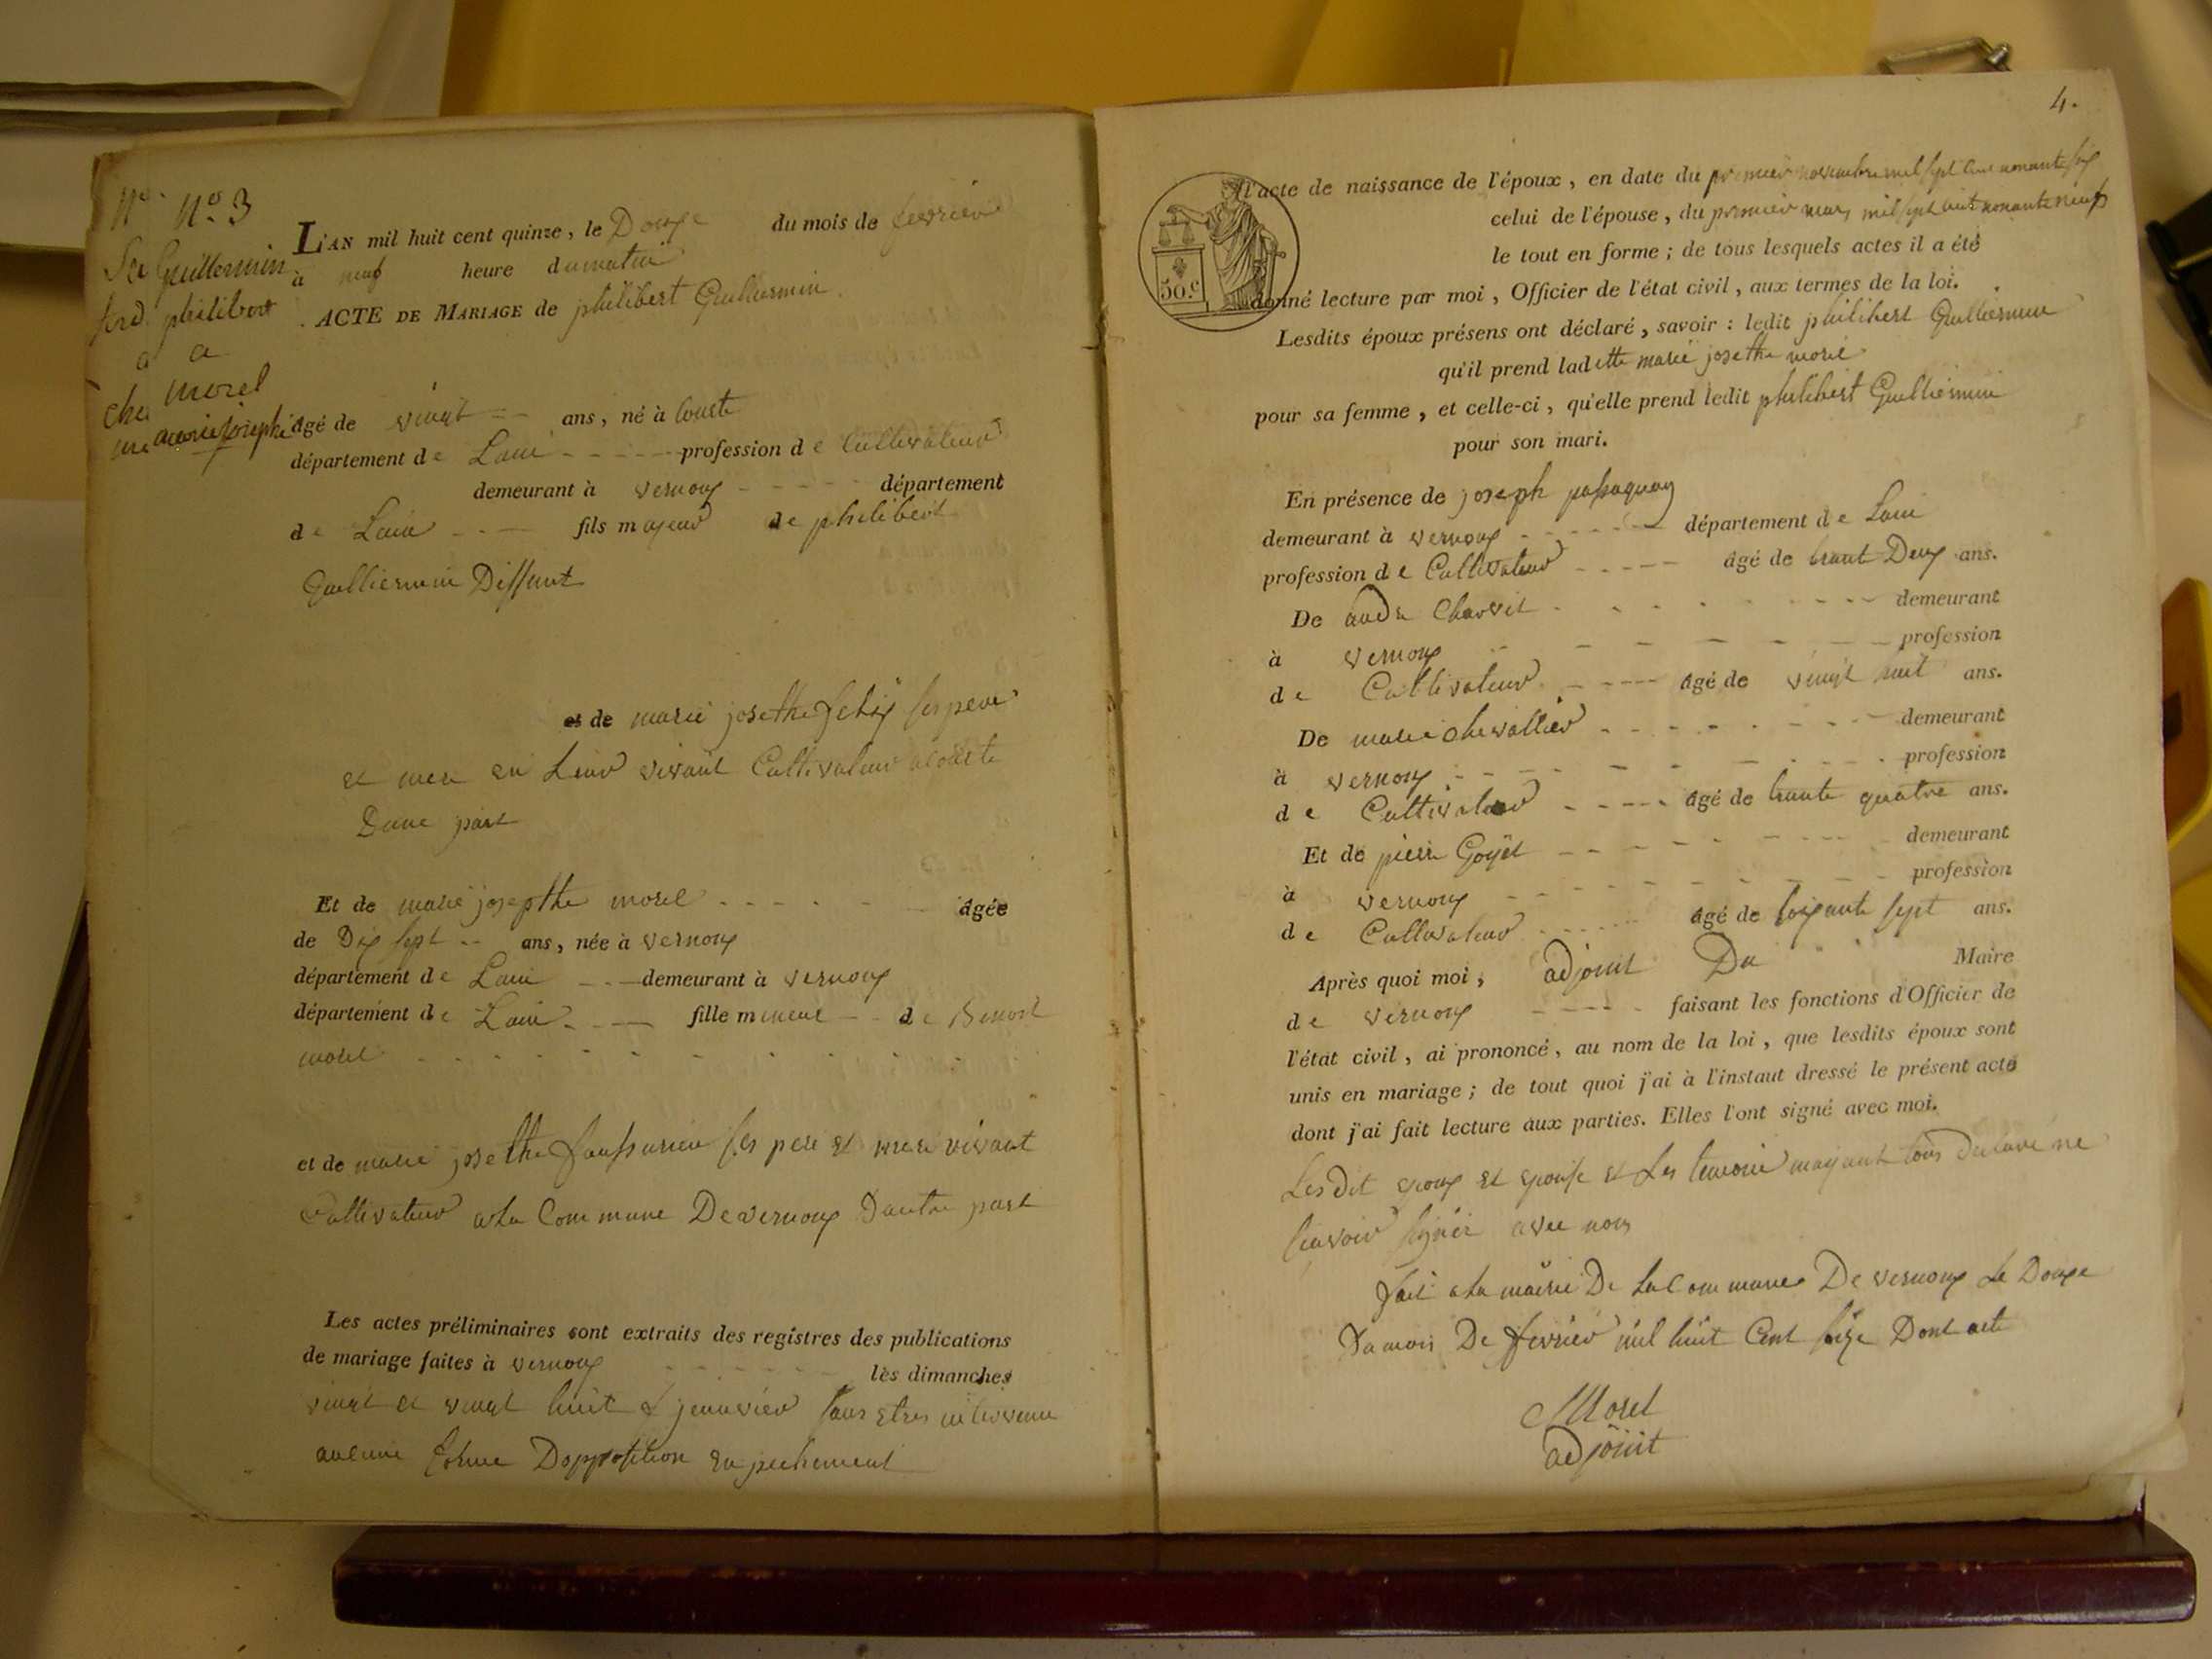 N° 3
Guillermin
philibert
a
morel
marie josephe
L'AN mil huit cent quinze, le Douze du mois de fevrier
à neuf heure du matin
ACTE DE MARIAGE de philibert Guilliermin
âgé de vingt ans, né à
département de Lain profession de Cultivateur
demeurant à vernoux département
de Lain fils majeur de philibert
Guilliermin Deffunt
et de marie josethe ses pere
et mere en Leur vivant Cultivateur
Dune part
Et de marie josepthe morel âgée
de Dix sept ans, née à vernoux
département de Lain demeurant à vernoux
département de Lain fille mineur de Benoit
morel
et de marie josethe ses pere et mere vivant
Cultivateur a La Commune De vernoux Dautre part
Les actes préliminaires sont extraits des registres des publications
de mariage faites à vernoux les dimanches
vingt et vingt huit janvier sans
aucune forme Dopposition
4.
50.c
l'acte de naissance de l'époux, en date du premier novembre mil sept cent nonante six
celui de l'épouse, du premier mars mil sept cent nonante neuf
le tout en forme; de tous lesquels actes il a été
donné lecture par moi, Officier de l'état civil, aux termes de la loi.
Lesdits époux présens ont déclaré, savoir: ledit philibert Guilliermin
qu'il prend ladette marie josethe morel
pour sa femme, et celle-ci, qu'elle prend ledit philibert Guilliermin
pour son mari.
En présence de joseph
demeurant à vernoux département de Lain
profession de Cultivateur âgé de trant Deux ans.
De demeurant
à vernoux profession
de Cultivateur âgé de vingt huit ans.
De marie chevallier demeurant
à vernoux profession
de Cultivateur âgé de trante quatre ans.
Et de pierre Goyet demeurant
à vernoux profession
de Cultivateur âgé de soixante sept ans.
Après quoi moi, adjoint Du Maire
de vernoux faisant les fonctions d'Officier de
l'état civil, ai prononcé, au nom de la loi, que lesdits époux sont
unis en mariage; de tout quoi j'ai à l'instant dressé le présent acte
dont j'ai fait lecture aux parties. Elles l'ont signé avec moi.
Les Dit epoux et epouse et Les temoin mayant tous Declaré ne
scavoir signer avec nous
fait a La mairie De La Commune De vernoux Le Douze
Du mois De fevrier mil huit Cent seize Dont acte
Morel
adjoint